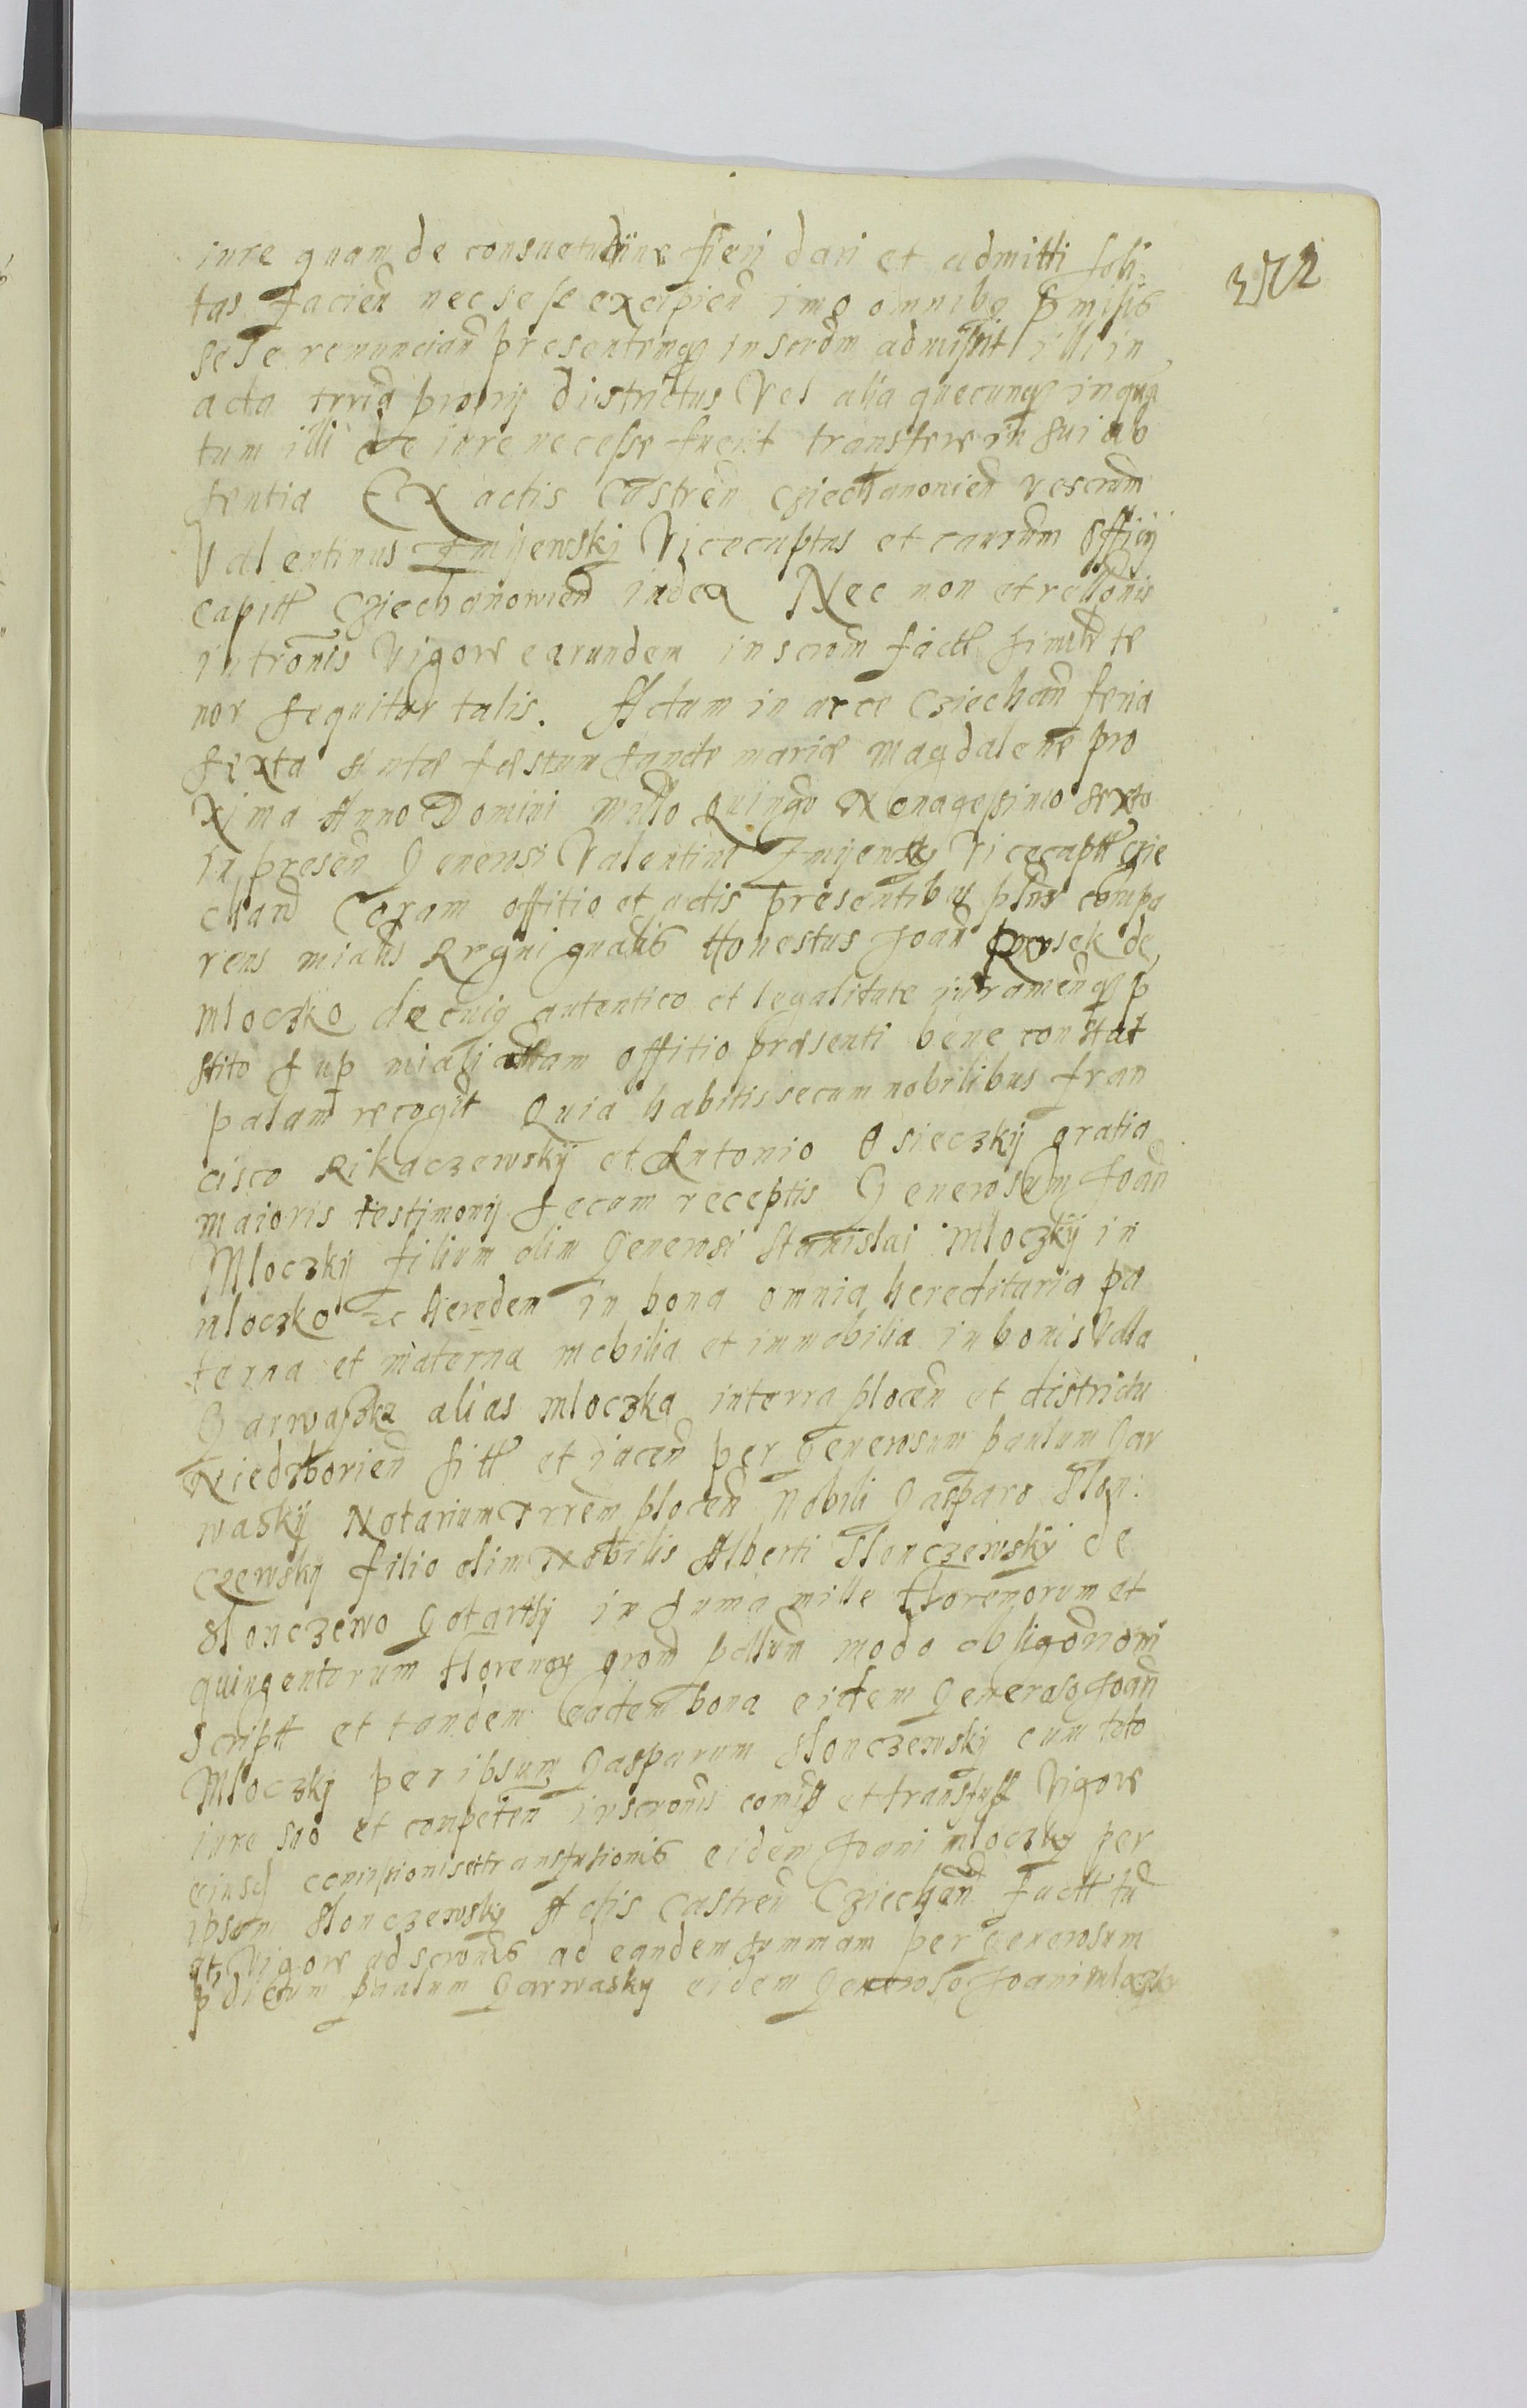 372
iure quam de consuetudine fieri dari et admitti soli
tas facien nec sese excipien imo omnibq pmissis
sese renuncian presentemq inscrom admisit illi in
acta trria proprij districtus Vel alia quecunq inqua
tum illi de iure necesse fuerit transferre in sui ab
sentia Ex actis Castren Cziechanowien rescrum
Valentinus Zmijewskj Vicecaptus et causum Officij
capitl Cziechanowien iudex Nec non et rellonis
intronis Vigore earundem inscrom factl simul te
nor sequitur talis. Actum in arce Cziechan feria
sexta Ante festum sancte mariæ Magdalene pro
xima Anno Domini millo Quingo Nonagessimo sexto
in presen Generosi Valentini Zmijewskj Vicecaptl Czie
chan Coram offitio et actis presentibus plnr compa
rens mialis Regni gnalis Honestus Joan de
Mloczko de cuiq autentico et legalitate juramenqp p
stito sup mialj offitio præsenti bene constat
palam recogt Quia habitis secum nobilibus fran
cisco Rikaczewskij et Antonio Osieczkij gratia
maioris testimonij secum receptis Generosum Joan
Mloczkij filium olim Generosi Stanislai Mloczkij in
mloczko hæredem in bona omnia hereditaria pa
terna et materna mobilia et immobilia in bonis Villa
Garwaszka alias Mloczka interra plocen et districtu
Niedzborien sitl et iacen per Generosum paulum Gar
waskij Notarium trrem plocen Nobili Gasparo Slon:
czewskij filio olim Nobilis Alberti Slonczewskij de
Slonczewo Gotartij in suma mille florenorum et
quingentorum florenog prom pollum modo obligonom
scriptl et tandem eadem bona eidem Generoso Joan
Mloczkj per ipsum Gasparum Slonczewskj cum toto
iure suo et competen inscronis comiss et transfuss Vigore
eiusd comissionis et transfusionis eidem Joani mloczkj per
ipsum Slonczewskj Actis Castren Cziechan factl
Vigore adscronis ad eandem summam per Generosum
pdictum paulum Garwaskij eidem Generoso Joani mloczkj